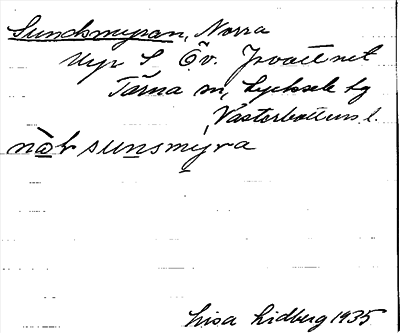 Sundsmyran, Norra
Myr S Öv. Jovattnet
Tärna sn, Lycksele lg
Västerbottens l.
nàr sunsmýra
Lisa Lidberg 1935